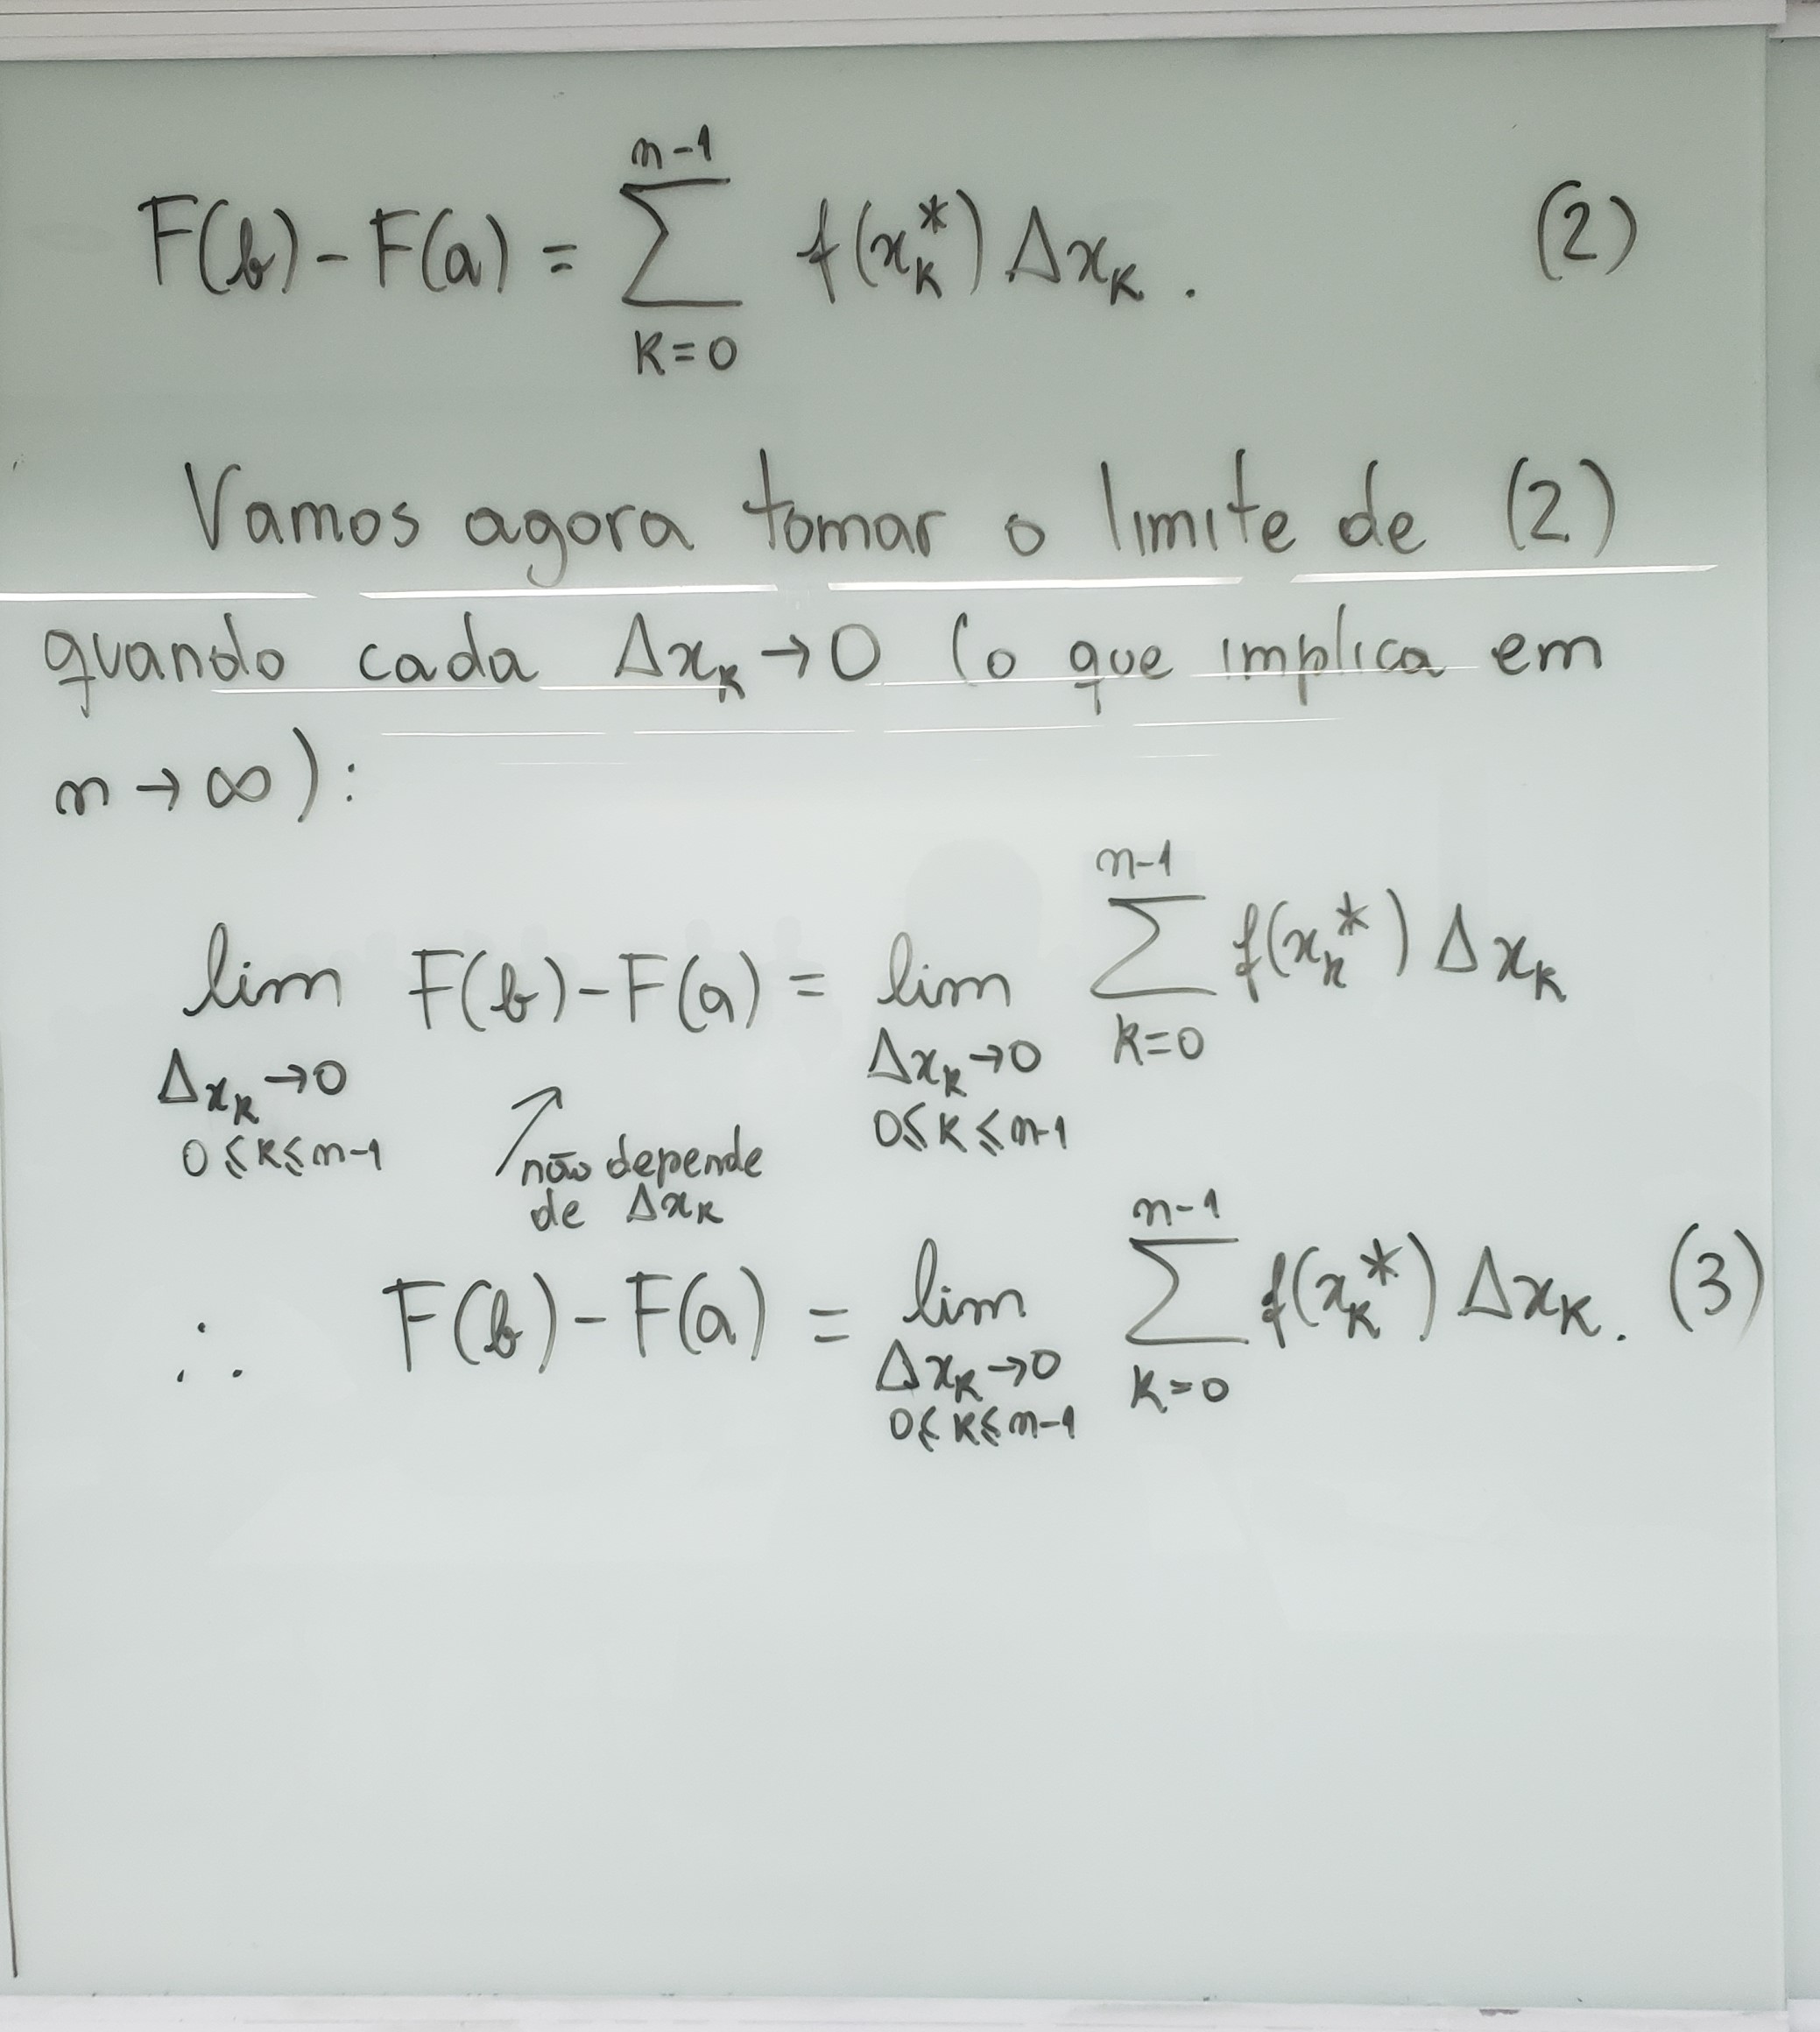 F(b) - F(a) = \sum_{k=0}^{n-1} f(x_k^*) Δx_k. (2)
Vamos agora tomar o limite de (2)
quando cada Δx_k → 0 (o que implica em
n → ∞):
\lim_{Δx_k → 0, 0 ≤ k ≤ n-1} F(b) - F(a) = \lim_{Δx_k → 0, 0 ≤ k ≤ n-1} \sum_{k=0}^{n-1} f(x_k^*) Δx_k
↗ não depende
de Δx_k
∴ F(b) - F(a) = \lim_{Δx_k → 0, 0 ≤ k ≤ n-1} \sum_{k=0}^{n-1} f(x_k^*) Δx_k. (3)